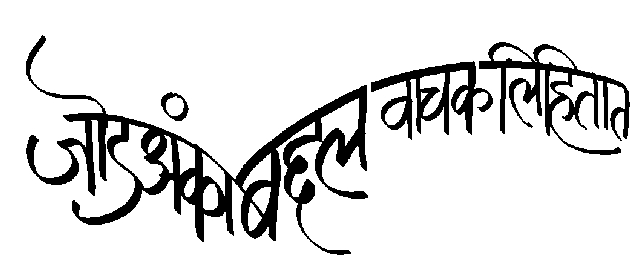 जोडअंकाबद्दल वाचक लिहितात